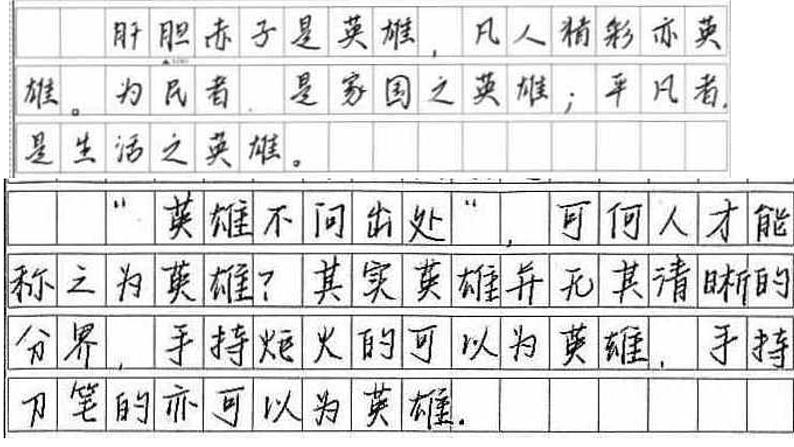 肝胆赤子是英雄，凡人精彩亦英
雄。为民者，是家国之英雄；平凡者，
是生活之英雄。
“英雄不问出处“，可何人才能
称之为英雄？其实英雄并无其清晰的
分界，手持炬火的可以为英雄，手持
刀笔的亦可以为英雄.